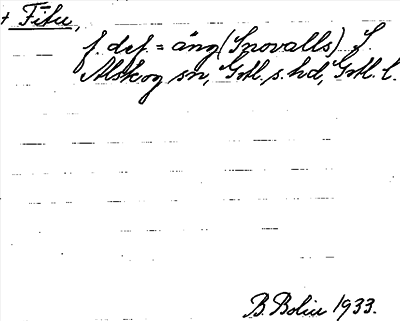 + Fītu,
f. def. = äng (Snovalls) L.
Alskog sn, Gotl. s. hd, Gotl. l.
B. Bolin 1933.